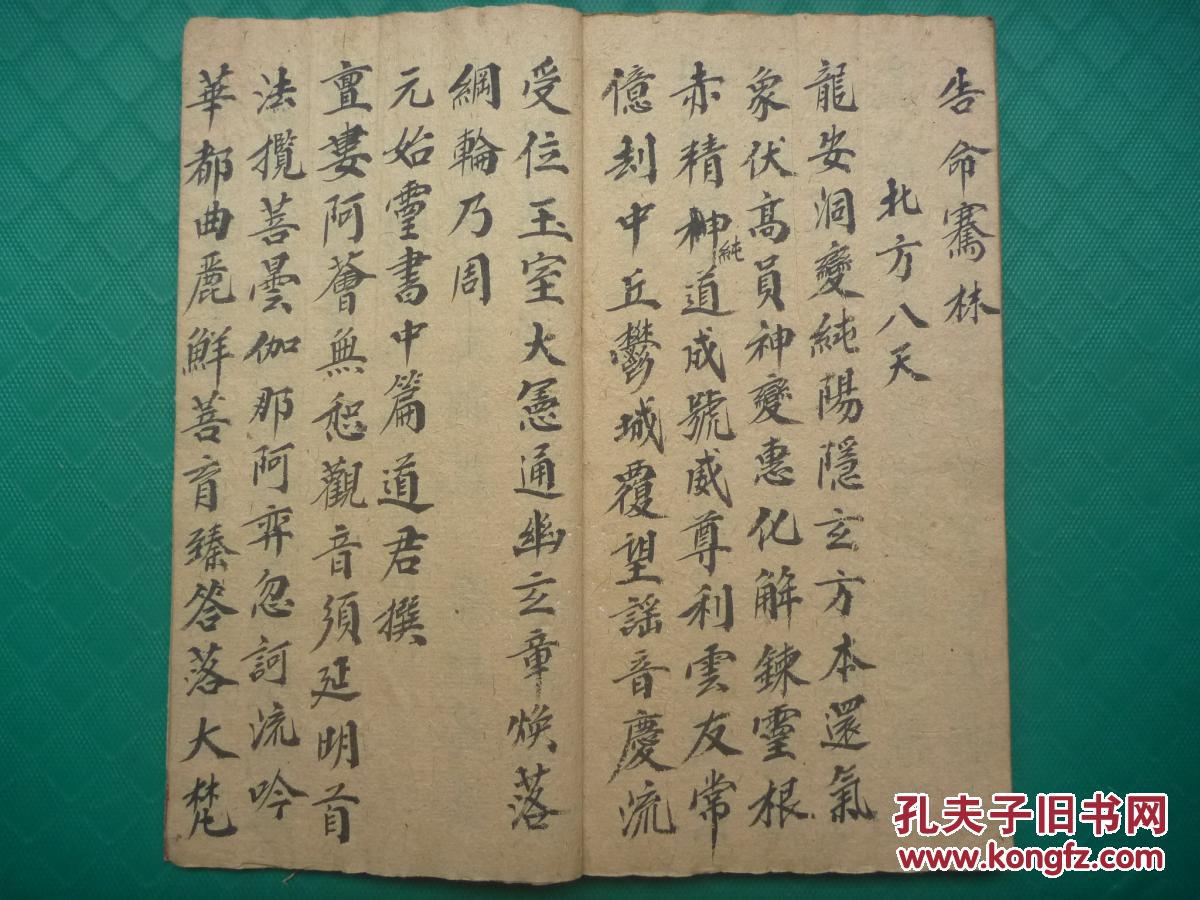 告命騫林
北方八天
龍安洞變純陽隱玄方本還氣
象伏高員神變惠化解鍊靈根
赤精神道成號威尊利雲友常
純
億刼中丘鬱城覆望謡音慶流
受位玉室大寚通幽玄章煥落
綱輪乃周
元始靈書中篇道君撰
亶婁阿薈無惒觀音須延明首
法攬菩曇伽那阿弈忽訶流吟
華都曲麗鮮菩育臻答落大梵
孔夫子旧书网
www.kongfz.com